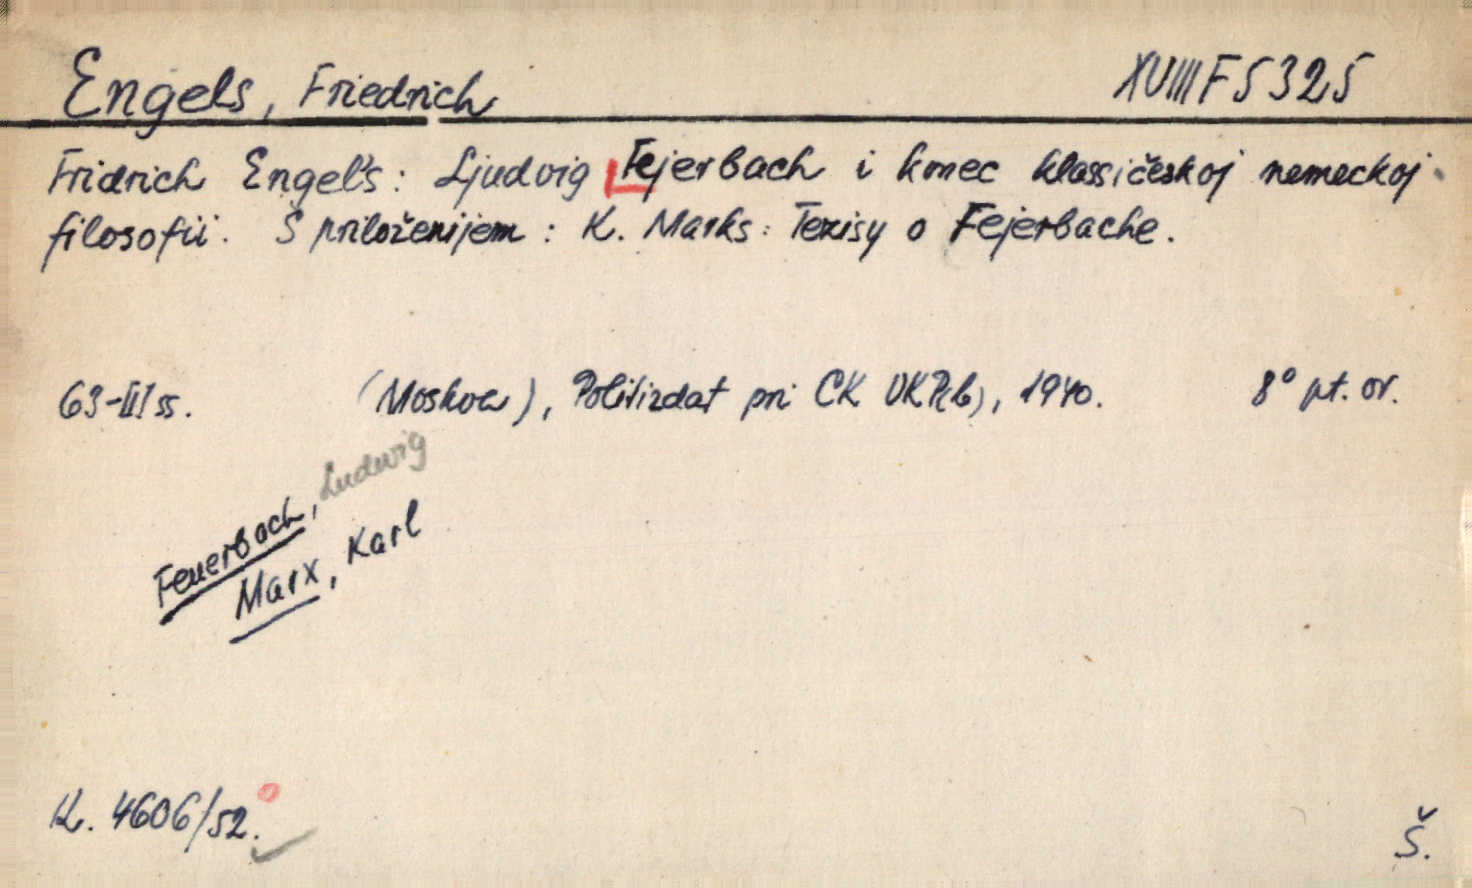 Engels, Friedrich XVIII F 5325
Fridrich Engel's: Ljudvig Fejerbach i konec klassičeskoj nemeckoj
filosofii. S priloženijem: K. Marks: Tezisy o Fejerbache.
63-III ss. (Moskva), Politizdat pri CK VKP(b), 1940. 8° pt. or.
Feuerbach, Ludwig
Marx, Karl
K. 4606/52.
Š.